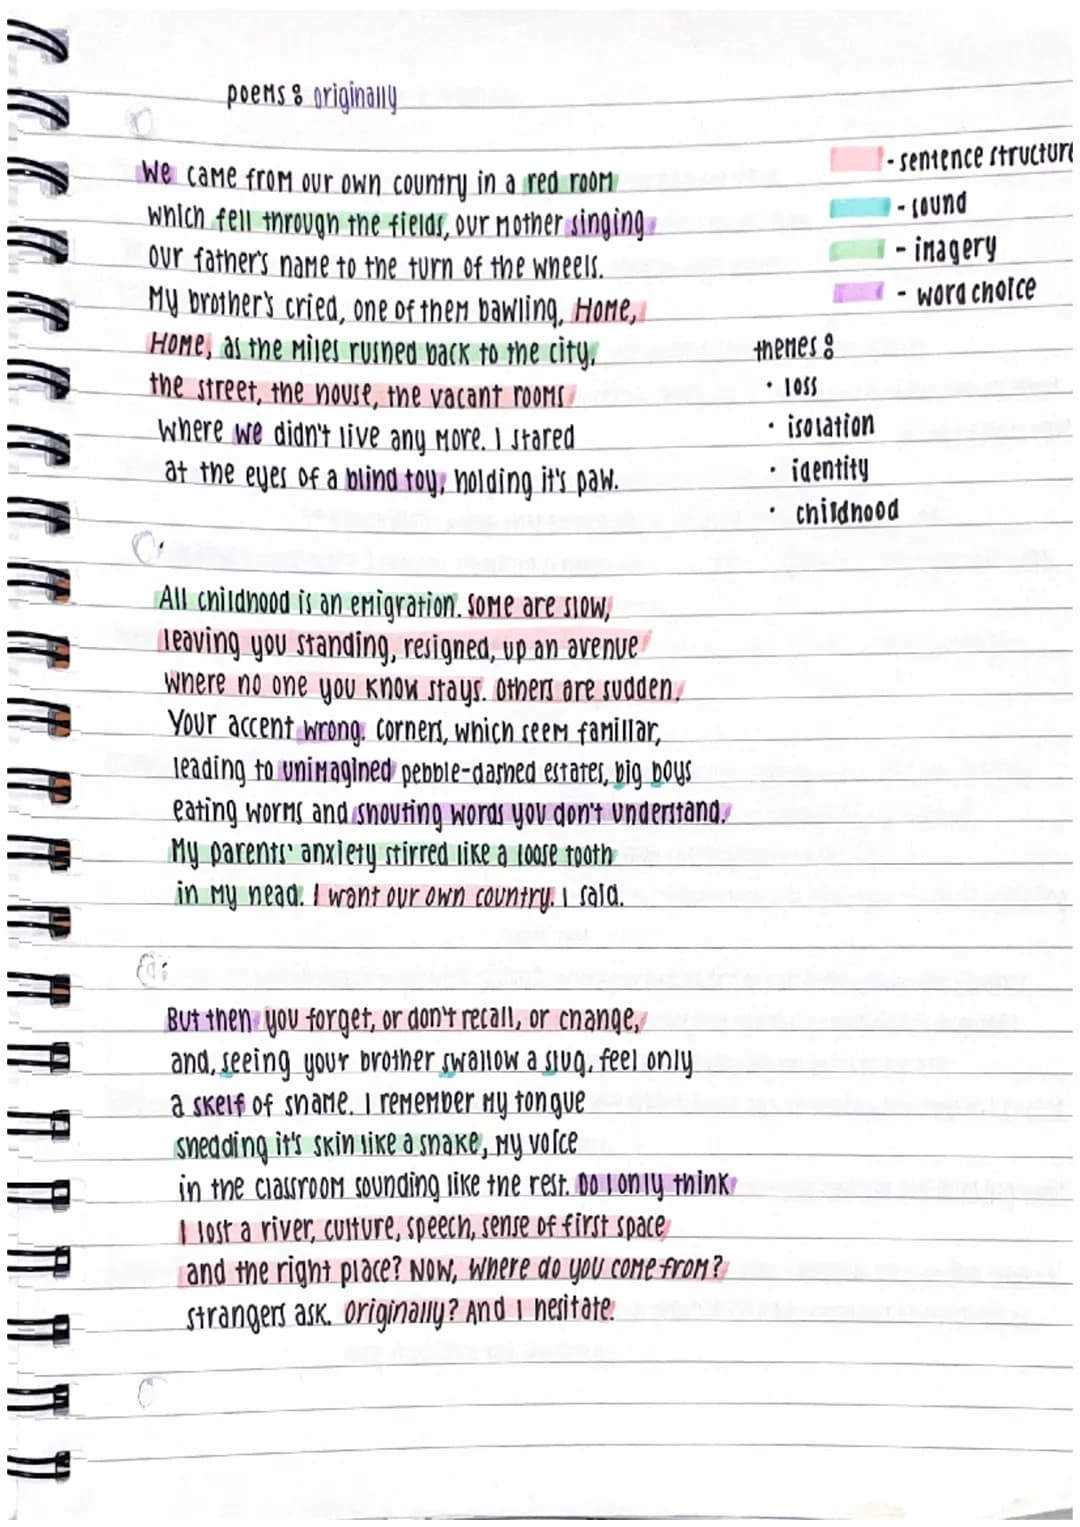 poems : originally
We came from our own country in a red room
which fell through the fields, our mother singing
our father's name to the turn of the wheels.
My brother's cried, one of them bawling, Home,
Home, as the miles rushed back to the city,
the street, the house, the vacant rooms
where we didn't live any more. I stared
at the eyes of a blind toy, holding it's paw.
- sentence structure
- sound
- imagery
- word choice
themes :
• loss
• isolation
• identity
• childhood
All childhood is an emigration. Some are slow,
leaving you standing, resigned, up an avenue
where no one you know stays. Others are sudden.
Your accent wrong. Corners, which seem familiar,
leading to unimagined pebble-dashed estates, big boys
eating worms and shouting words you don't understand.
My parents' anxiety stirred like a loose tooth
in my head. I want our own country. I said.
But then you forget, or don't recall, or change,
and, seeing your brother swallow a slug, feel only
a skelf of shame. I remember my tongue
shedding it's skin like a snake, my voice
in the classroom sounding like the rest. Do I only think
I lost a river, culture, speech, sense of first space
and the right place? Now, Where do you come from?
strangers ask. Originally? And I hesitate.